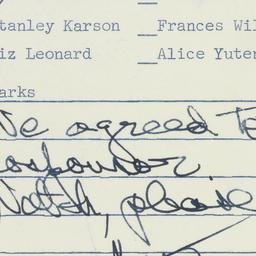 tanley Karson __Frances Wil
iz Leonard __Alice Yuter
arks
We agreed to
cosponsor
Natch, please